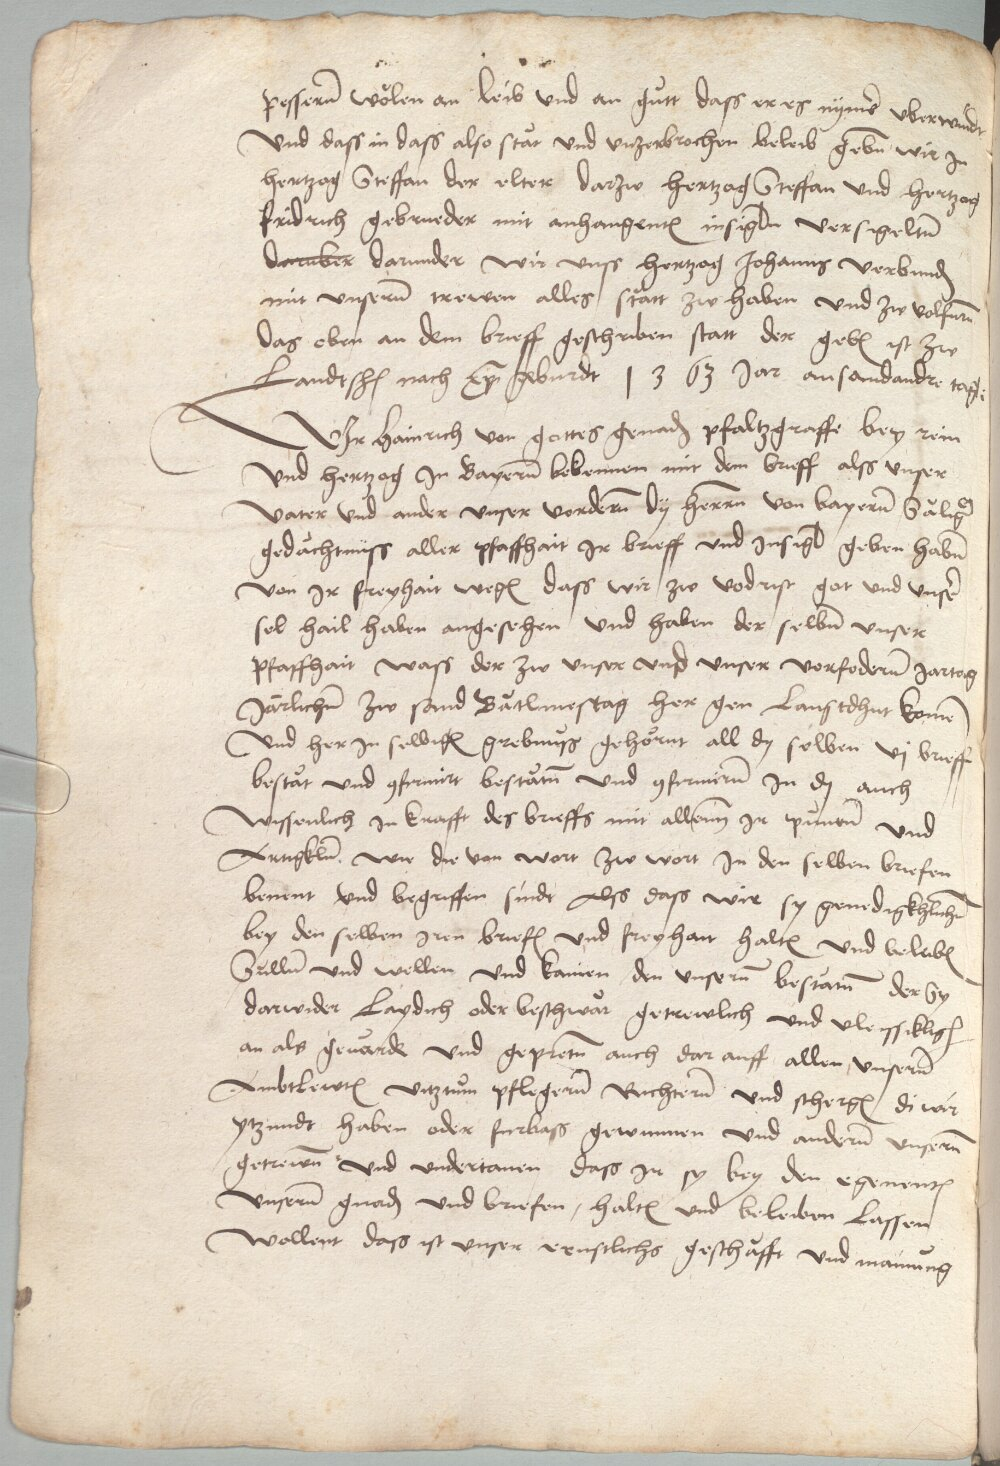 pessern̄ wölen an leib vnd an gutt dass er es nymer vberwindt
Vnd dass in dass also stät vnd vnzerbrochen beleib gebn̄ wir In
hertzog Steffan der elter darzw hertzog Steffan vnd hertzog
fridrich gebrueder mit anhangenten insigln versigeltn̄
daruber darunder wir vnss hertzog Johanns verbinden
mit vnsern̄ trewen alles statt zw haben vnd zw volfurn̄
das oben an dem brieff geschriben statt der geben ist zw
Landtsh nach xp̄i geburdt 1363 Jar an sandandre tage
Wir Hainrich von gottes genaden pfaltzgraffe bey rein
vnd hertzog In Bayern̄ bekennen mit dem brieff alss vnser
Vater vnd ander vnser vordern̄ dy herrn von bayern̄ Sälig
gedächtnuss aller pfaffhait Ir brieff vnd Insigl geben habn̄
von Ir freyhait wegen dass wir zw vodrist got vnd vnser
sel hail haben angesehen vnd haben der selbn̄ vnser
pfaffhait wass der zw vnser vnd vnser vorfodern̄ Jartag
Järlichn̄ zw sand Bätlmestag her gen Lanstdhut komen
Vnd her In selbigen grebnuss gehörnt all dy selben vj brieff
bestät vnd 9firmirt bestätn̄ vnd 9firmirn̄ In dy auch
wissenlich In krafft des brieffs mit allenn Ir puntn̄ vnd
Artigkln̄ wie die von wort zw wort In den selben briefen
benent vnd begriffen sindt Alss dass wir sy genedigkhlichn̄
bey den selben Iren briefen vnd freyhait halten vnd beleiben
Sülln̄ vnd wellen vnd kainen den vnsern̄ bestatn̄ der Sy
darwider Laydich oder beschwär getrewlich vnd vleissikligen
an als geuärde vnd gepietn̄ auch dar auff allen vnsern̄
Ambtlewten vitztum pflegern̄ Richtern̄ vnd schergen di wir
ytzundt haben oder furbass gewinnen vnd andern̄ vnsern̄
getrewn̄ vnd vndertanen dass Ir sy bey den egenenten
vnsern̄ gnaden vnd briefen halten vnd beleiben Lassen
wollent dass ist vnser ernstlichs geschäfft vnd mainung